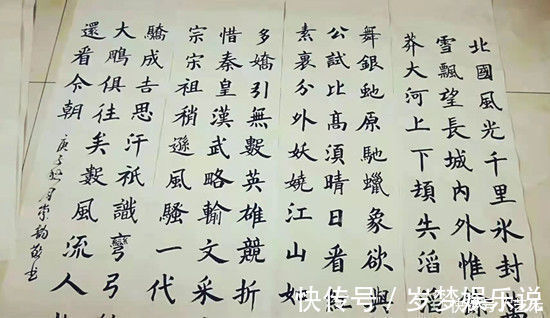 北國風光千里冰封萬
雪飄望長城內外惟
莽大河上下頓失滔
舞銀虵原馳蠟象欲與
公試比高須晴日看
素裹分外妖嬈江山如
多嬌引無數英雄競折
惜秦皇漢武略輸文采
宗宋祖稍遜風騷一代
驕成吉思汗祇識彎弓
大鵰俱往矣數風流人
還看今朝
庚子
快传号 / 岁梦娱乐说